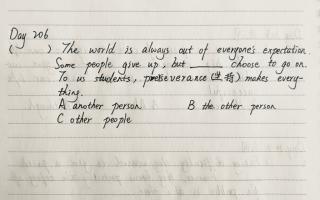 Day 206
( ) The world is always out of everyone's expectation.
Some people give up, but ______ choose to go on.
To us students, perseverance (坚持) makes every-
thing.
A another person B the other person
C other people